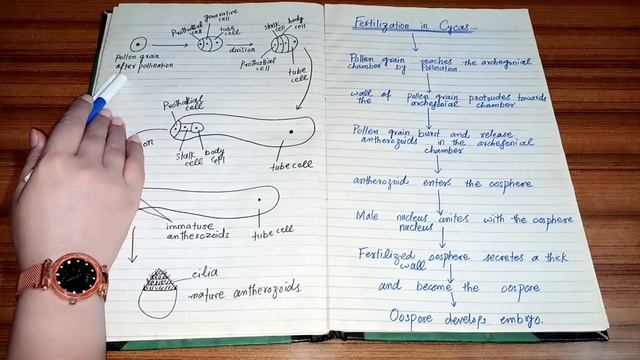 generative cell
Prothallial cell
tube cell
stalk cell
body cell
Pollen grain
after pollination
division
Prothallial cell
tube cell
Prothallial cell
on
stalk cell
body cell
tube cell
immature antherozoids
tube cell
cilia
mature antherozoids.
Fertilization in Cycas
Pollen grain reaches the archegonial
chamber by Pollination.
wall of Pollen grain protrudes towards
the archegonial chamber
Pollen grain burst and release
antherozoids in the archegonial
chamber
antherozoid enters the oosphere
Male nucleus unites with the oosphere
nucleus
Fertilized oosphere secretes a thick
wall
and become the oospore
Oospore develops embryo.